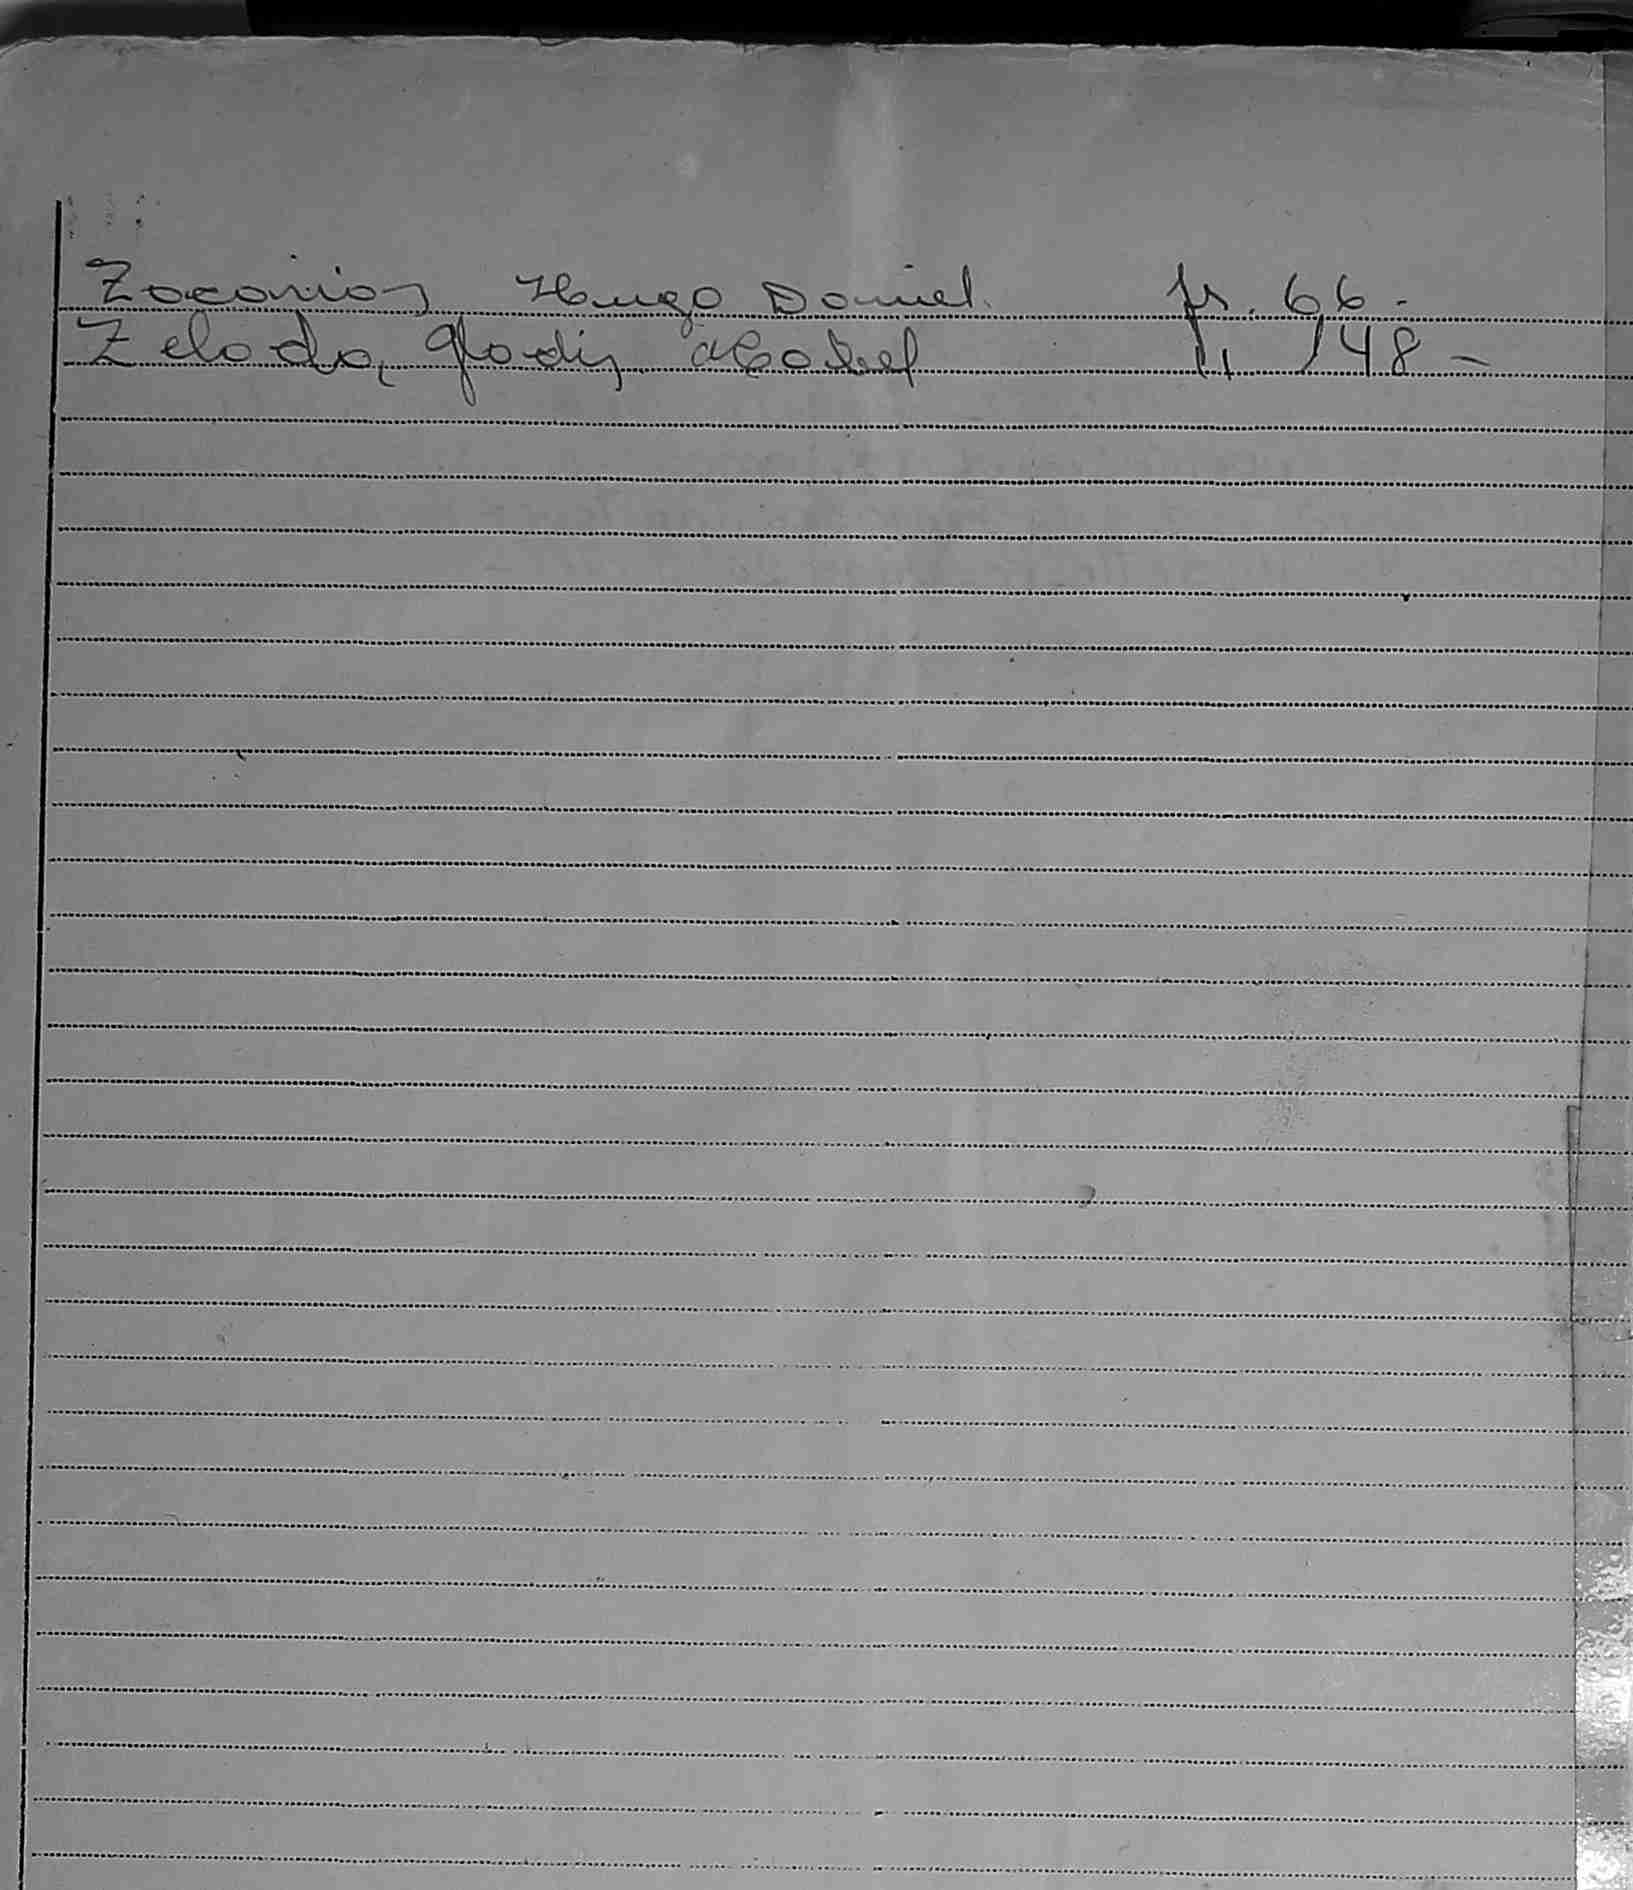 Zacarias Hugo Daniel. fs. 66.-
Zelada, Gladis Mabel " 148 -